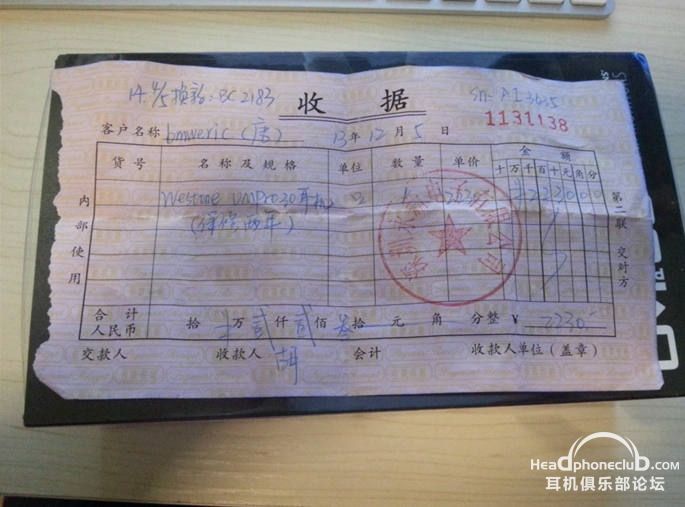 14. 4/5 换新: BC2183
收 据
Sn: A13635
1131138
客户名称 bmweric (唐) 13年12月5日
货号 名称及规格 单位 数量 单价 金额
十万千百十元角分
内部使用
Westone UMPro30耳机 1 2230 2230 0 0
(保修两年)
第二联 交对方
合计人民币 拾 万贰仟贰佰叁拾 元 角 分整 ¥ 2230.-
交款人 收款人 胡 会计 收款人单位(盖章)
Headphoneclub.com
耳机俱乐部论坛